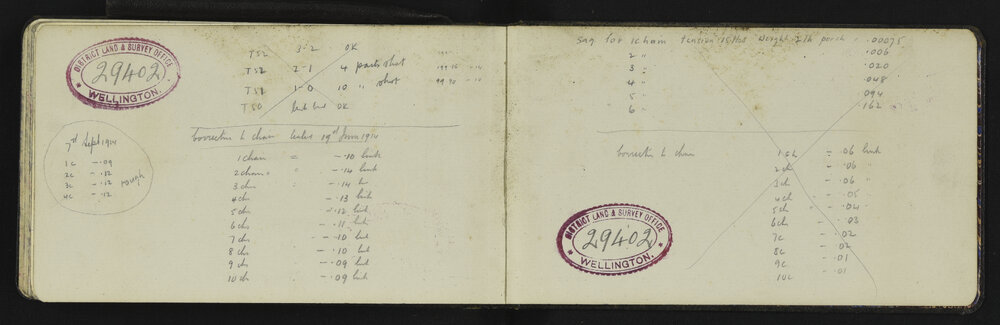 DISTRICT LAND & SURVEY OFFICE
29402
WELLINGTON.
T52 3-2 OK
T52 2-1 4 parts shot
T51 1-0 10 " shot
T50 OK
7th Sept 1914
1c - .09
2c - .12
3c - .12 rough
4c - .12
Correction to chain 19th June 1914
1 chain = - .10 link
2 chains " - .14 link
3 chs " - .14 "
4 ch - .13 link
5 chs - .12 link
6 chs - .11 link
7 chs - .10 link
8 chs - .10 link
9 chs - .09 link
10 chs - .09 link
Sag for 1 chain tension 15 lbs weight lb per ch - .00075
2 " .006
3 " .020
4 " .048
5 " .094
6 " .162
Correction to chain
1 ch - .06 link
2 ch - .06 "
3 ch - .06 "
4 ch - .05
5 ch - .04
6 ch - .03
7c - .02
8c - .02
9c - .01
10c - .01
DISTRICT LAND & SURVEY OFFICE
29402
WELLINGTON.